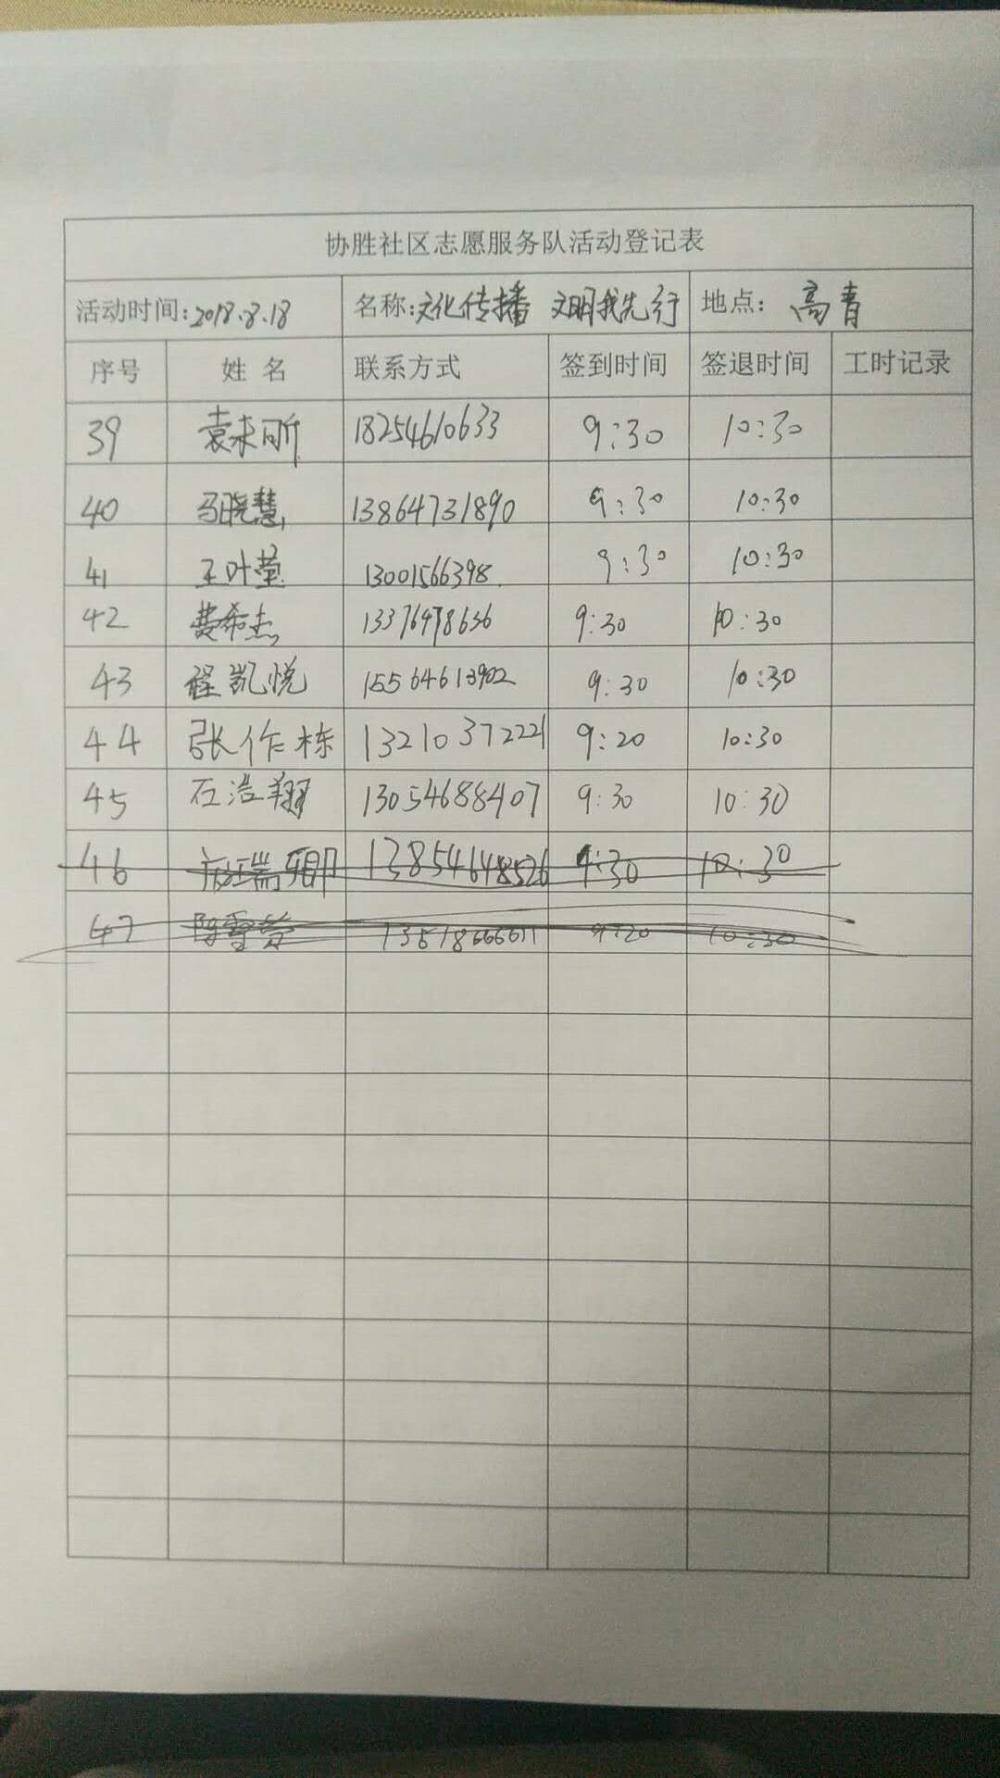 协胜社区志愿服务队活动登记表
活动时间:2018.8.18 名称:文化传播 文明我先行 地点: 高青
序号 姓名 联系方式 签到时间 签退时间 工时记录
39 袁未昕 18254610633 9:30 10:30
40 马晓慧 13864731890 9:30 10:30
41 王叶莹 13001566398 9:30 10:30
42 费希杰 9:30 10:30
43 程凯悦 15564613902 9:30 10:30
44 张作栋 13210372221 9:20 10:30
45 石浩翔 13054688407 9:30 10:30
46 13854648526 9:30 10:30
47 9:20 10:30